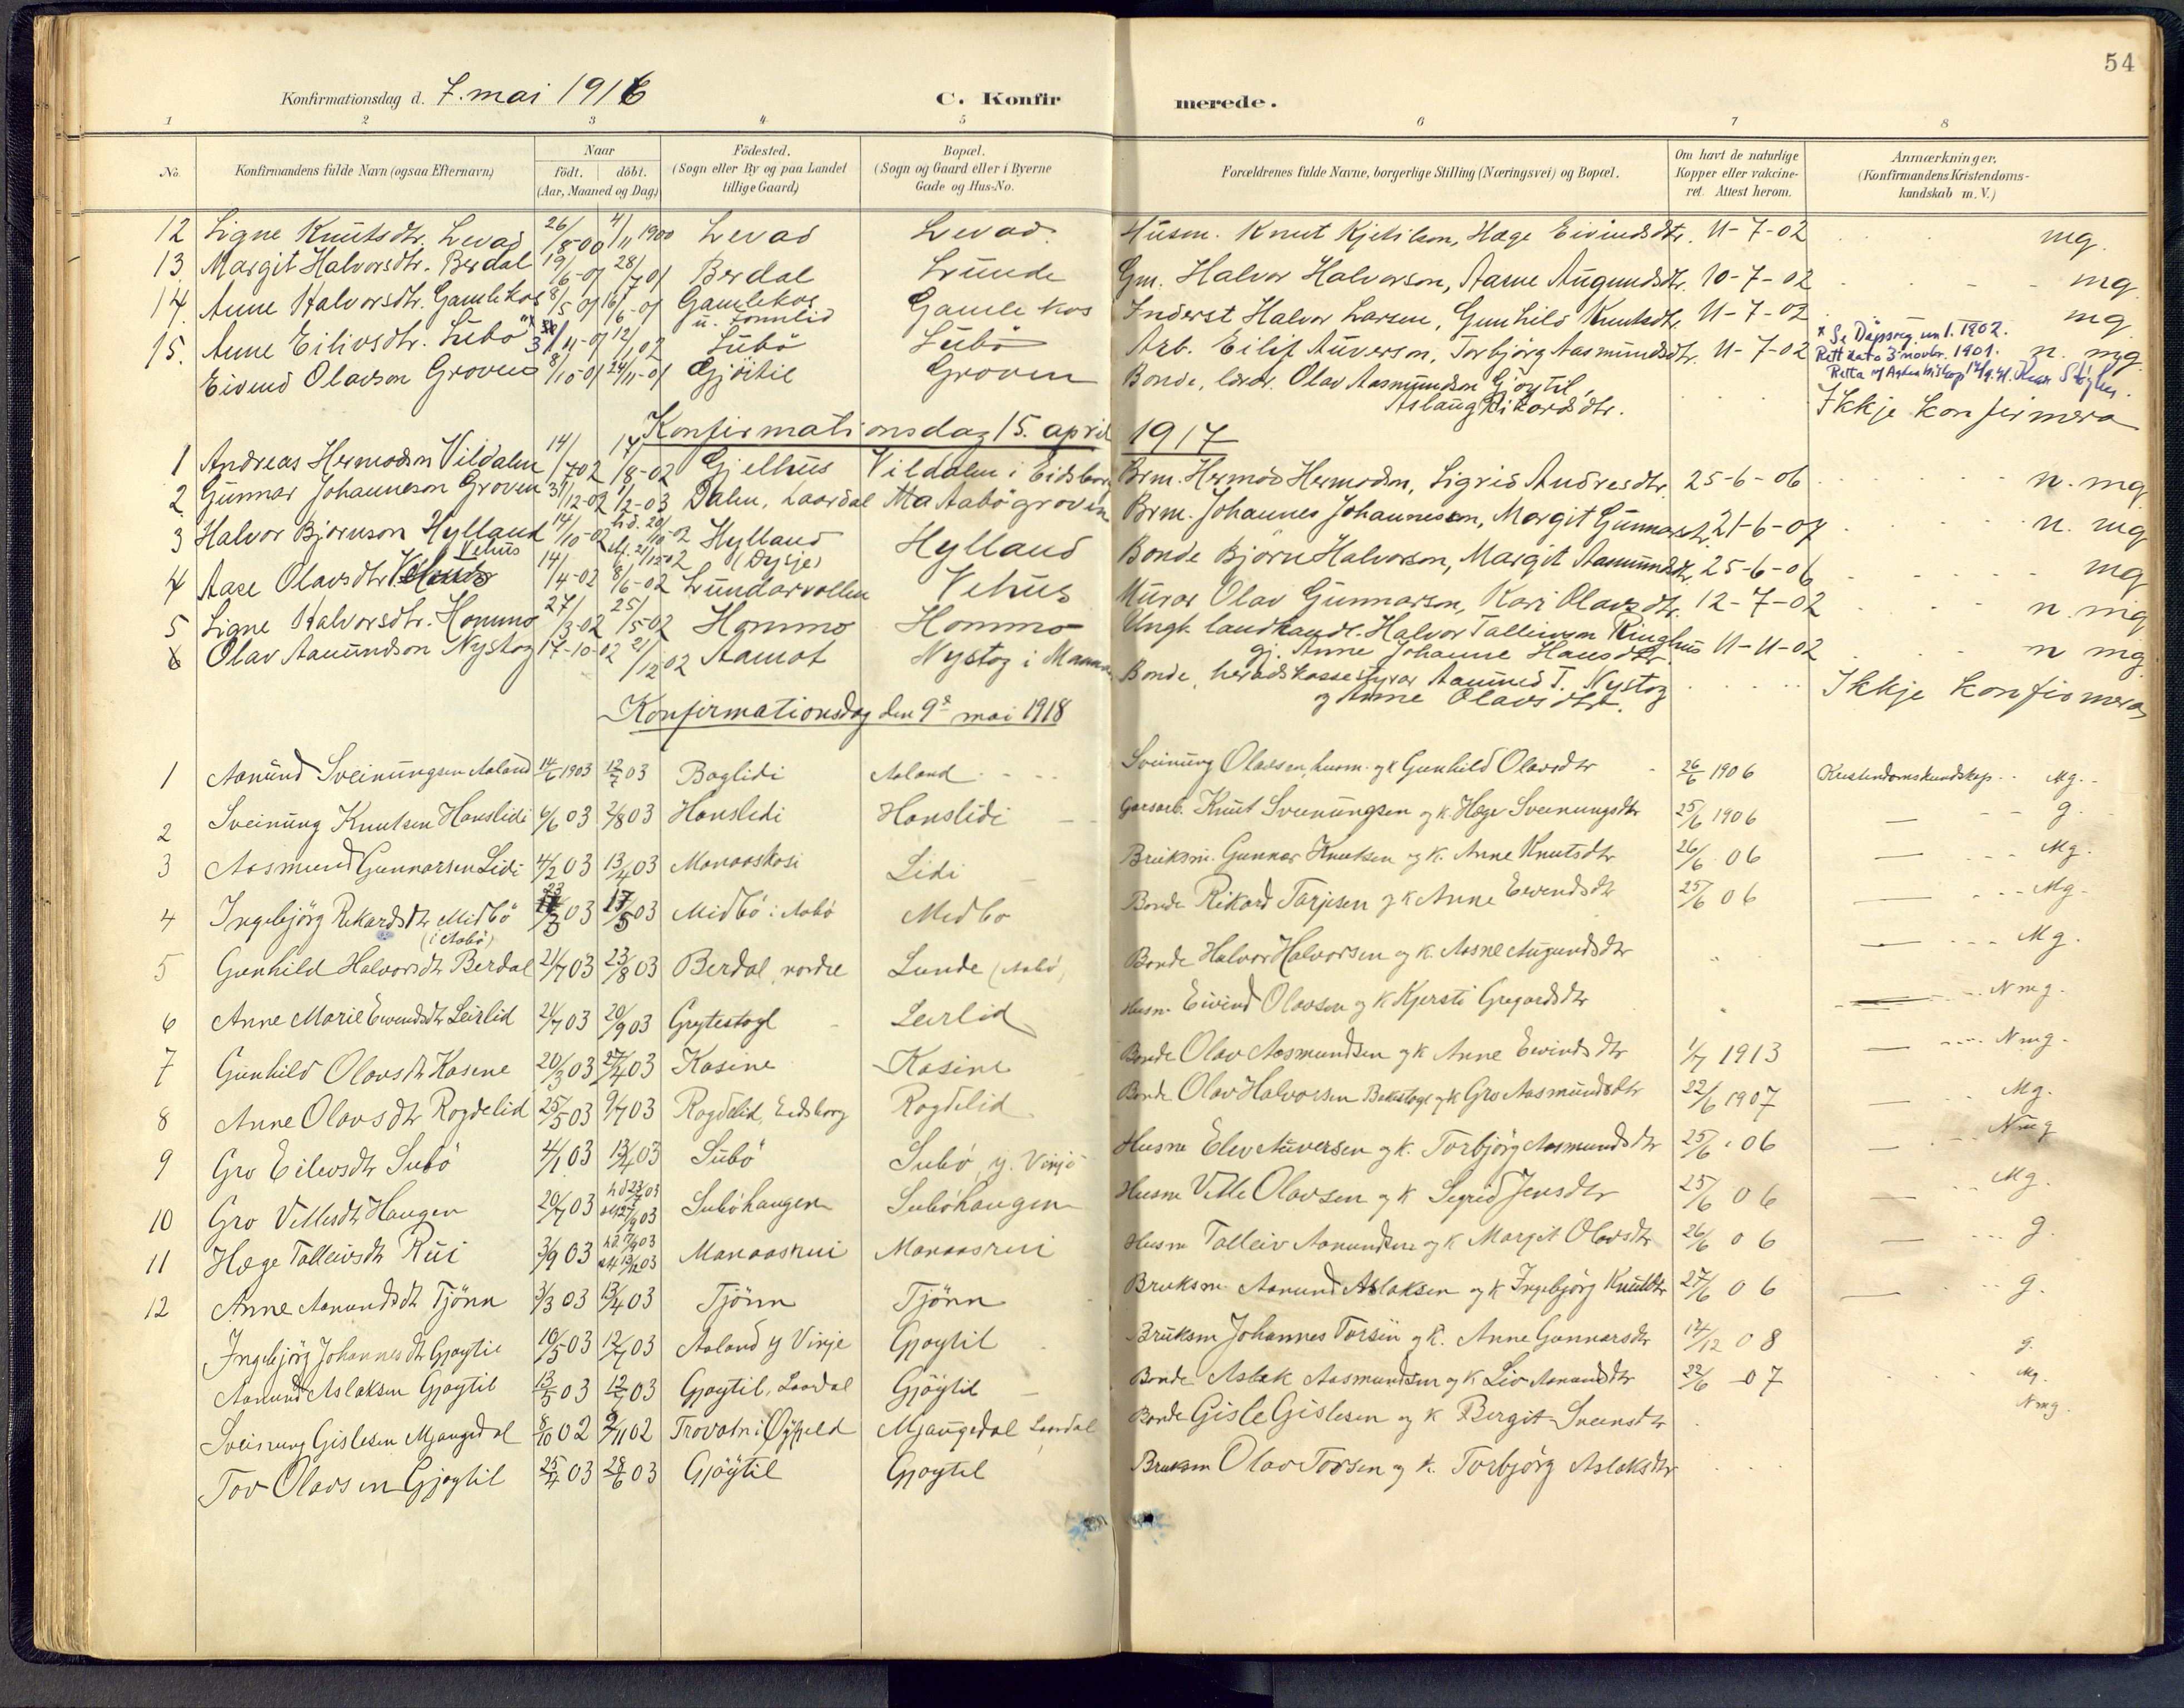 54
Konfirmationsdag d. 7. mai 1916
C. Konfirmerede.
1 2 3 4 5 6 7 8
No. Konfirmandens fulde Navn (ogsaa Efternavn) Naar født. døbt. (Aar, Maaned og Dag) Födested. (Sogn eller By og paa Landet tillige Gaard) Bopæl. (Sogn og Gaard eller i Byerne Gade og Hus-No. Forældrenes fulde Navne, borgerlige Stilling (Næringsvei) og Bopæl. Om havt de naturlige Kopper eller vakcineret. Attest herom. Anmærkninger. (Konfirmandens Kristendomskundskab m. V.)
12 Signe Knutsdtr. Levad 26/8-00 4/11 1900 Levad Levad. Husm. Knut Kjetilson, Hæge Eivindsdtr. 11-7-02 mg.
13 Margit Halvorsdtr. Berdal 19/6-01 28/7 01 Berdal Lunde Gm. Halvor Halvorson, Aasne Augundsdtr. 10-7-02 mg.
14. Anne Halvorsdtr. Gamlekos 8/5 01 16/6-01 Gamlekos u. Tomlid Gamlekos Inderst Halvor Larsen, Gunhild Knutsdtr. 11-7-02 mg
15. Anne Eilivsdtr. Subö x 3/11-01 12/1 02 Subö Subö Arb. Eilif Auverson, Torbjörg Aasmundsdtr. 11-7-02 n. mg.
x Se Dåpsreg. un 1. 1902.
Rett dato 3 novbr. 1901.
Eivind Olavson Groven 8/10-01 24/11-01 Gjöitil Groven Bonde, lærar. Olav Aasmundson Gjöytil, Aslaug Rikardsdtr. Ikkje konfirmera
Konfirmationsdag 15. april 1917
1 Andreas Hermodson Vildalen 14/7 02 17/8-02 Gjelhus Vildalen i Eidsborg Brm. Hermod Hermodson, Sigrid Andresdtr. 25-6-06 n. mg
2 Gunnar Johanneson Groven 31/12-02 1/12-03 Dalen, Laardal Aabögroven Brm. Johannes Johanneson, Margit Gunnarsdtr. 21-6-07 n. mg
3 Halvor Bjørnson Hylland 14/10-02 hd. 20/10-02 Hylland (Dysje) Hylland Bonde Bjørn Halvorson, Margit Aamundsdtr. 25-6-06 mg
4 Aase Olavsdtr. Vehus 14/4-02 8/6-02 Lundarvollen Vehus Murar Olav Gunnarson, Kari Olavsdtr. 12-7-02 n. mg
5 Signe Halvorsdtr. Hommo 27/3-02 25/5-02 Hommo Hommo Ungk. landhandl. Halvor Talleivson Ringhus gj. Anne Johanne Hansdtr. 11-11-02 n mg.
6 Olav Aamundson Nystog 17-10-02 21/12 02 Aamot Nystog i Bonde, heradskassestyrar Aamund T. Nystog og Anne Olavsdtr. Ikkje konfirmera
Konfirmationsdag den 9de mai 1918
1 Aanund Sveinungsen Aaland 14/6 1903 12/7 03 Baglidi Aaland Sveinung Olavsen, husm. og k Gunhild Olavsdtr 26/6 1906 Kristendomskundskap Mg.
2 Sveinung Knutsen Hanslidi 6/6 03 2/8 03 Hanslidi Hanslidi Garsarb. Knut Sveinungsen og k. Hæge Sveinungsdtr 25/6 1906 — g.
3 Aasmund Gunnarsen Lidi 4/2 03 13/4 03 Manaaskasi Lidi Bruksm. Gunnar Knutsen og k. Anne Knutsdtr 26/6 06 — Mg.
4 Ingebjörg Rikardsdtr Midbö (i Aabö) 23/3 03 17/5 03 Midbö i Aabö Midbo Bonde Rikard Tarjesen og k Anne Eivendsdtr 25/6 06 — Mg.
5 Gunhild Halvorsdtr Berdal 21/7 03 23/8 03 Berdal, nordre Lunde (Aabö) Bonde Halvor Halvorsen og k. Aasne Augundsdtr — Mg.
6 Anne Marie Eivendsdtr Leirlid 21/7 03 20/9 03 Grytestogl Leirlid Husm. Eivind Olavsen og k Kjersti Gregardsdtr — N mg.
7 Gunhild Olavsdtr Kasine 20/3 03 27/4 03 Kasine Kasine Bonde Olav Aasmundsen og k Anne Eivindsdtr 1/7 1913 — N mg.
8 Anne Olavsdtr Rogdelid 25/5 03 9/7 03 Rogdelid, Eidsborg Rogdelid Bonde Olav Halvorsen Bakstogl og k Gro Aasmundsdtr 22/6 1907 — Mg.
9 Gro Eilevsdtr Subö 4/1 03 13/4 03 Subö Subö, y. Vinje Husm Eilev Auversen og k. Torbjörg Aasmundsdtr 25/6 06 — Nmg
10 Gro Villesdtr Haugen 20/7 03 hd 23/7 03 27/9 03 Suböhaugen Suböhaugen Husm Ville Olavsen og k Sigrid Jensdtr 25/6 06 — Mg.
11 Hæge Talleivsdtr Rui 3/9 03 Manaasrui Manaasrui Husm Talleiv Aanundsen og k Margit Olavsdtr 26/6 06 — g.
12 Anne Aanundsdtr Tjönn 3/3 03 13/4 03 Tjönn Tjönn Bruksm. Aanund Aslaksen og k Ingebjörg Knutsdtr 27/6 06 — g.
Ingebjörg Johannesdtr Gjøytil 10/5 03 12/7 03 Aaland y Vinje Gjøytil Bruksm Johannes Torsen og k. Anne Gunnarsdtr 14/12 08 g.
Aanund Aslaksen Gjøytil 13/5 03 12/7 03 Gjøytil, Laardal Gjöytil Bonde Aslak Aasmundsen og k Liv Aanundsdtr 22/6 -07 Mg.
Sveinung Gislesen Mjaugedal 8/10 02 9/11 02 Trovatn i Øyfjeld Mjaugedal Laardal Bonde Gisle Gislesen og k Bergit Sveinsdtr N mg.
Tov Olavsen Gjøytil 25/4 03 28/6 03 Gjöytil Gjøytil Bruksm Olav Tovsen og k. Torbjörg Aslaksdtr